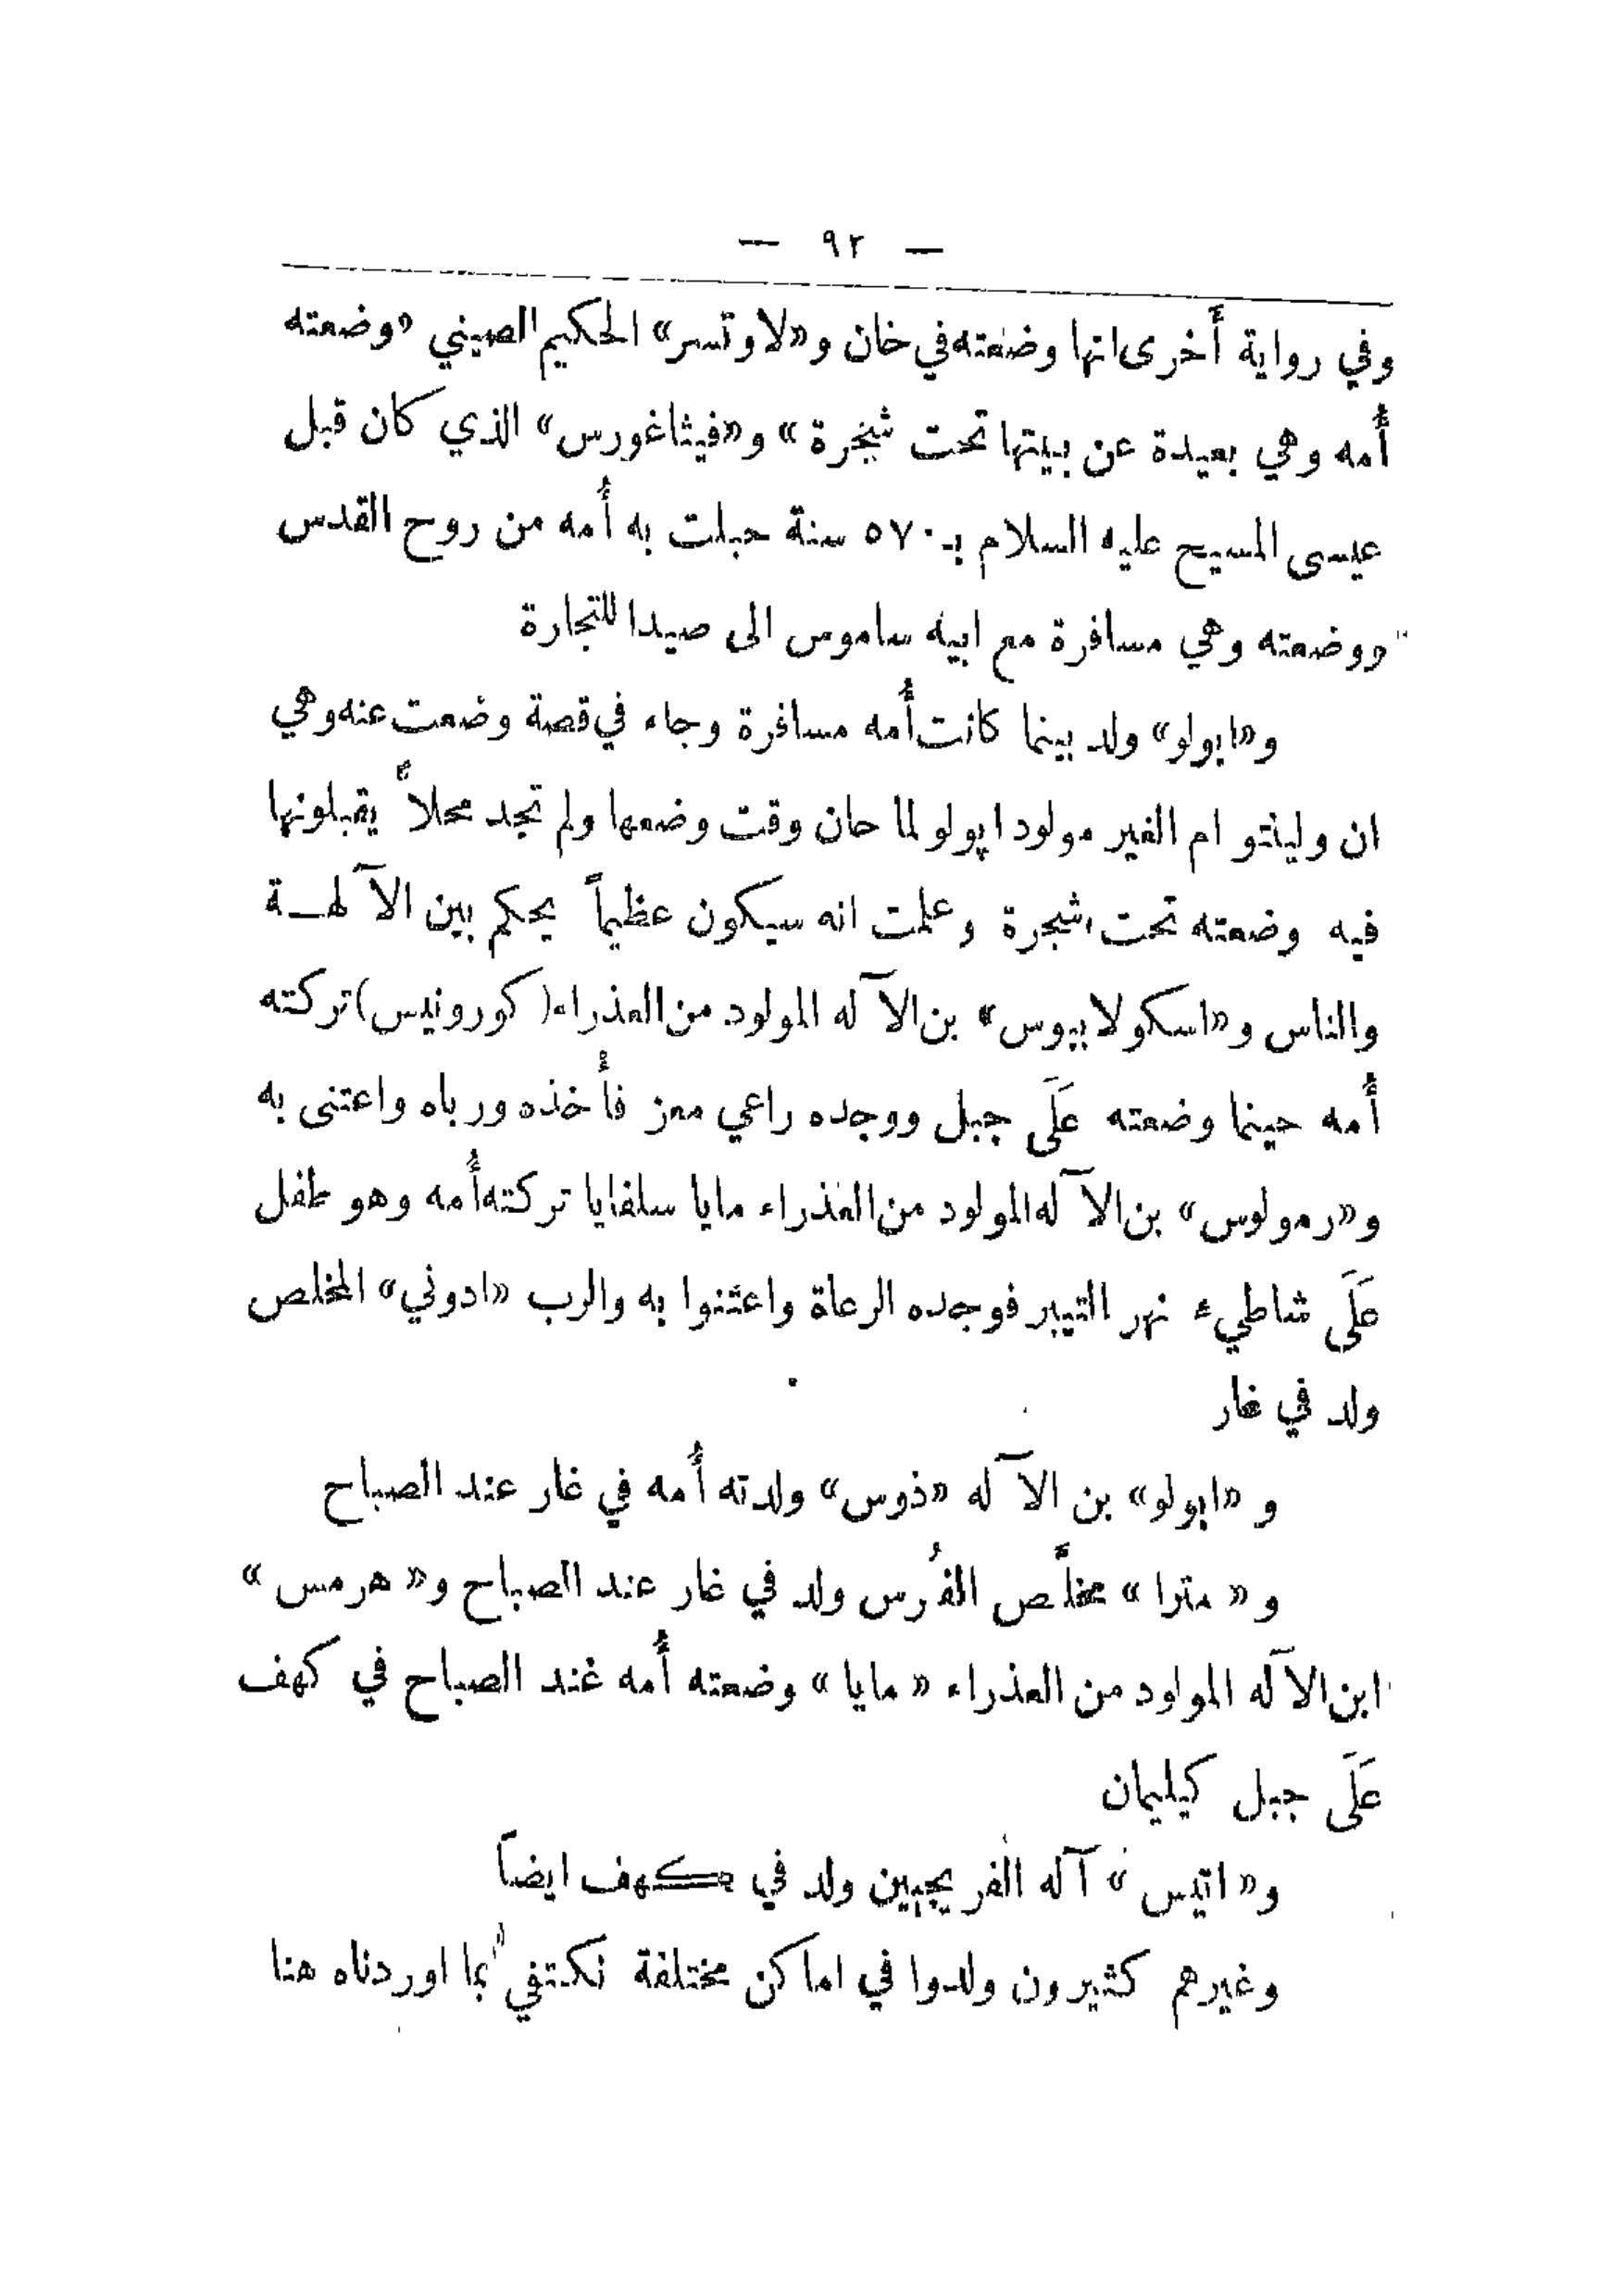 — ٩٢ —
وفي رواية أُخرى انها وضعته في خان و«لاوتسر» الحكيم الصيني «وضعته
أُمه وهي بعيدة عن بيتها تحت شجرة» و«فيثاغورس» الذي كان قبل
عيسى المسيح عليه السلام بـ٥٧٠ سنة حبلت به أُمه من روح القدس
ووضعته وهي مسافرة مع ابيه ساموس الى صيدا للتجارة
و«ابولو» ولد بينما كانت أُمه مسافرة وجاء في قصة وضعت عنه وهي
ان وليتو ام الغير مولود ابولو لما حان وقت وضعها ولم تجد محلاً يقبلونها
فيه وضعته تحت شجرة وعلمت انه سيكون عظيماً يحكم بين الآلهـة
والناس و«اسكولابيوس» بن الآله المولود من العذراء (كورونيس) تركته
أُمه حينما وضعته عَلَى جبل ووجده راعي معز فأخذه ورباه واعتنى به
و«رمولوس» بن الآله المولود من العذراء مايا سلفايا تركته أُمه وهو طفل
عَلَى شاطيء نهر التيبر فوجده الرعاة واعتنوا به والرب «ادوني» المخلص
ولد في غار
و «ابولو» بن الآله «ذوس» ولدته أُمه في غار عند الصباح
و « مترا » مخلّص الفُرس ولد في غار عند الصباح و« هرمس »
ابن الآله المولود من العذراء « مايا » وضعته أُمه عند الصباح في كهف
عَلَى جبل كيليمان
و« اتيس » آله الفريجيين ولد في كهف ايضاً
وغيرهم كثيرون ولدوا في اماكن مختلفة نكتفي بما اوردناه هنا